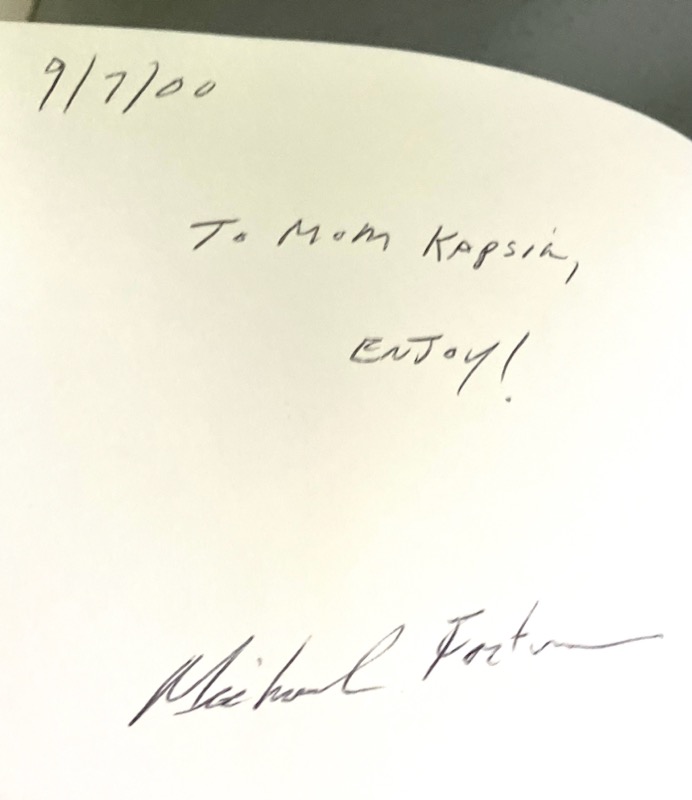 9/7/00
To Mom Kapsin,
ENJOY!
Michael